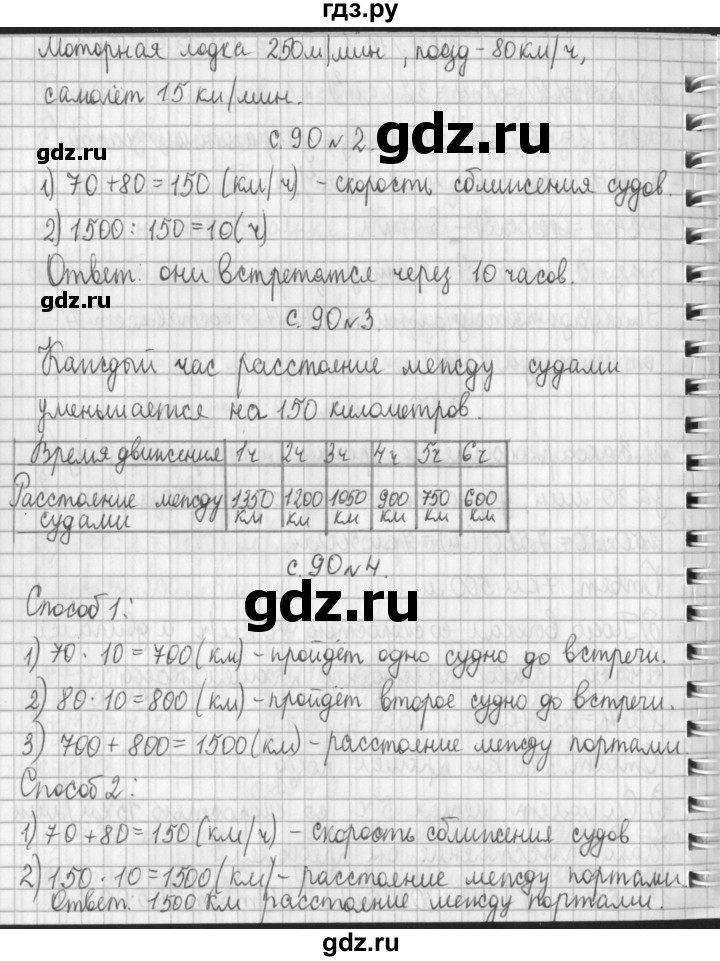 гдз.ру
Моторная лодка 250м/мин, поезд - 80км/ч,
самолёт 15 км/мин.
с. 90 № 2.
gdz.ru
gdz.ru
1) 70 + 80 = 150 (км/ч) - скорость сближения судов
2) 1500 : 150 = 10 (ч)
Ответ: они встретятся через 10 часов.
gdz.ru
с. 90 № 3.
gdz.ru
Каждый час расстояние между судами
уменьшается на 150 километров.
Время движения 1ч 2ч 3ч 4ч 5ч 6ч
Расстояние между судами 1350 км 1200 км 1050 км 900 км 750 км 600 км
с. 90 № 4.
gdz.ru
Способ 1:
1) 70 · 10 = 700 (км) - пройдёт одно судно до встречи.
2) 80 · 10 = 800 (км) - пройдёт второе судно до встречи.
3) 700 + 800 = 1500 (км) - расстояние между портами.
gdz.ru
Способ 2:
gdz.ru
1) 70 + 80 = 150 (км/ч) - скорость сближения судов
2) 150 · 10 = 1500 (км) - расстояние между портами
Ответ: 1500 км расстояние между портами.
gdz.ru